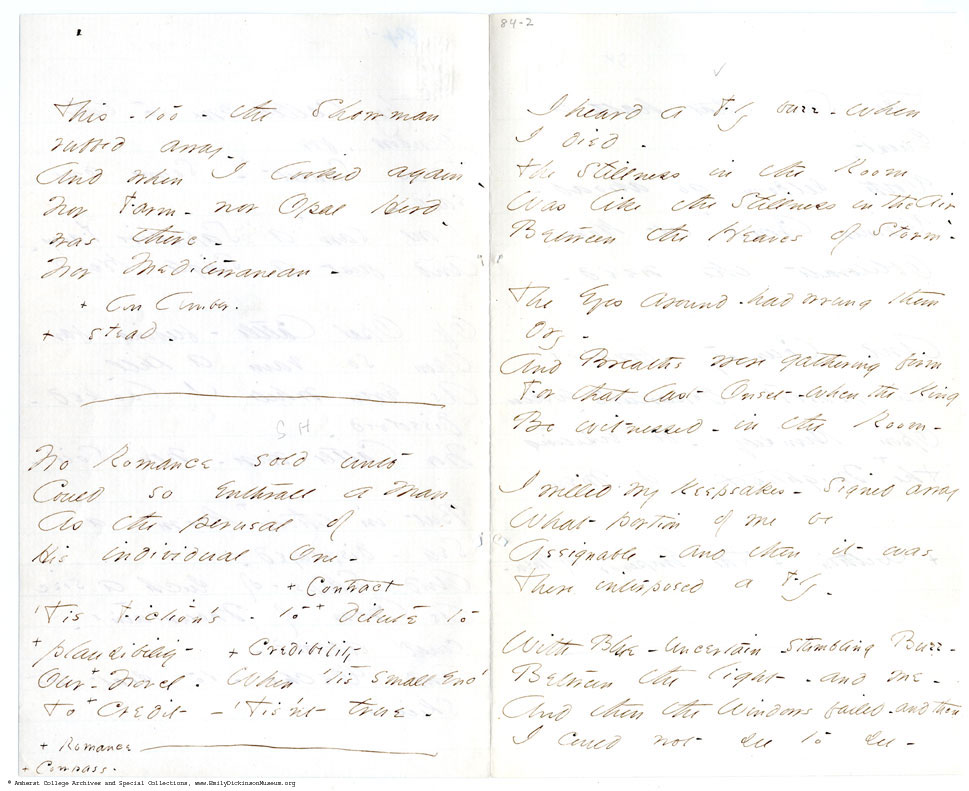 This - too - the Showman
rubbed away -
And when I looked again
Nor Farm - nor Opal Herd
was there -
Nor Mediterranean -
+ An Amber -
+ stead -
No Romance sold unto
Could so enthrall a Man
As the perusal of
His individual One -
+ Contract
'Tis Fiction's - to + Dilute to
+ plausibility + Credibility
Our + Novel. When 'tis small eno'
To + Credit - 'Tis'nt true -
+ Romance
+ Compass -
84-2
I heard a Fly buzz - when
I died -
The Stillness in the Room
Was like the Stillness in the Air -
Between the Heaves of Storm -
The Eyes around - had wrung them
dry -
And Breaths were gathering firm
For that last Onset - when the King
Be witnessed - in the Room -
I willed my Keepsakes - Signed away
What portion of me be
Assignable - and then it was
There interposed a Fly -
With Blue - uncertain stumbling Buzz -
Between the light - and me -
And then the Windows failed - and then
I could not see to see -
© Amherst College Archives and Special Collections, www.EmilyDickinsonMuseum.org